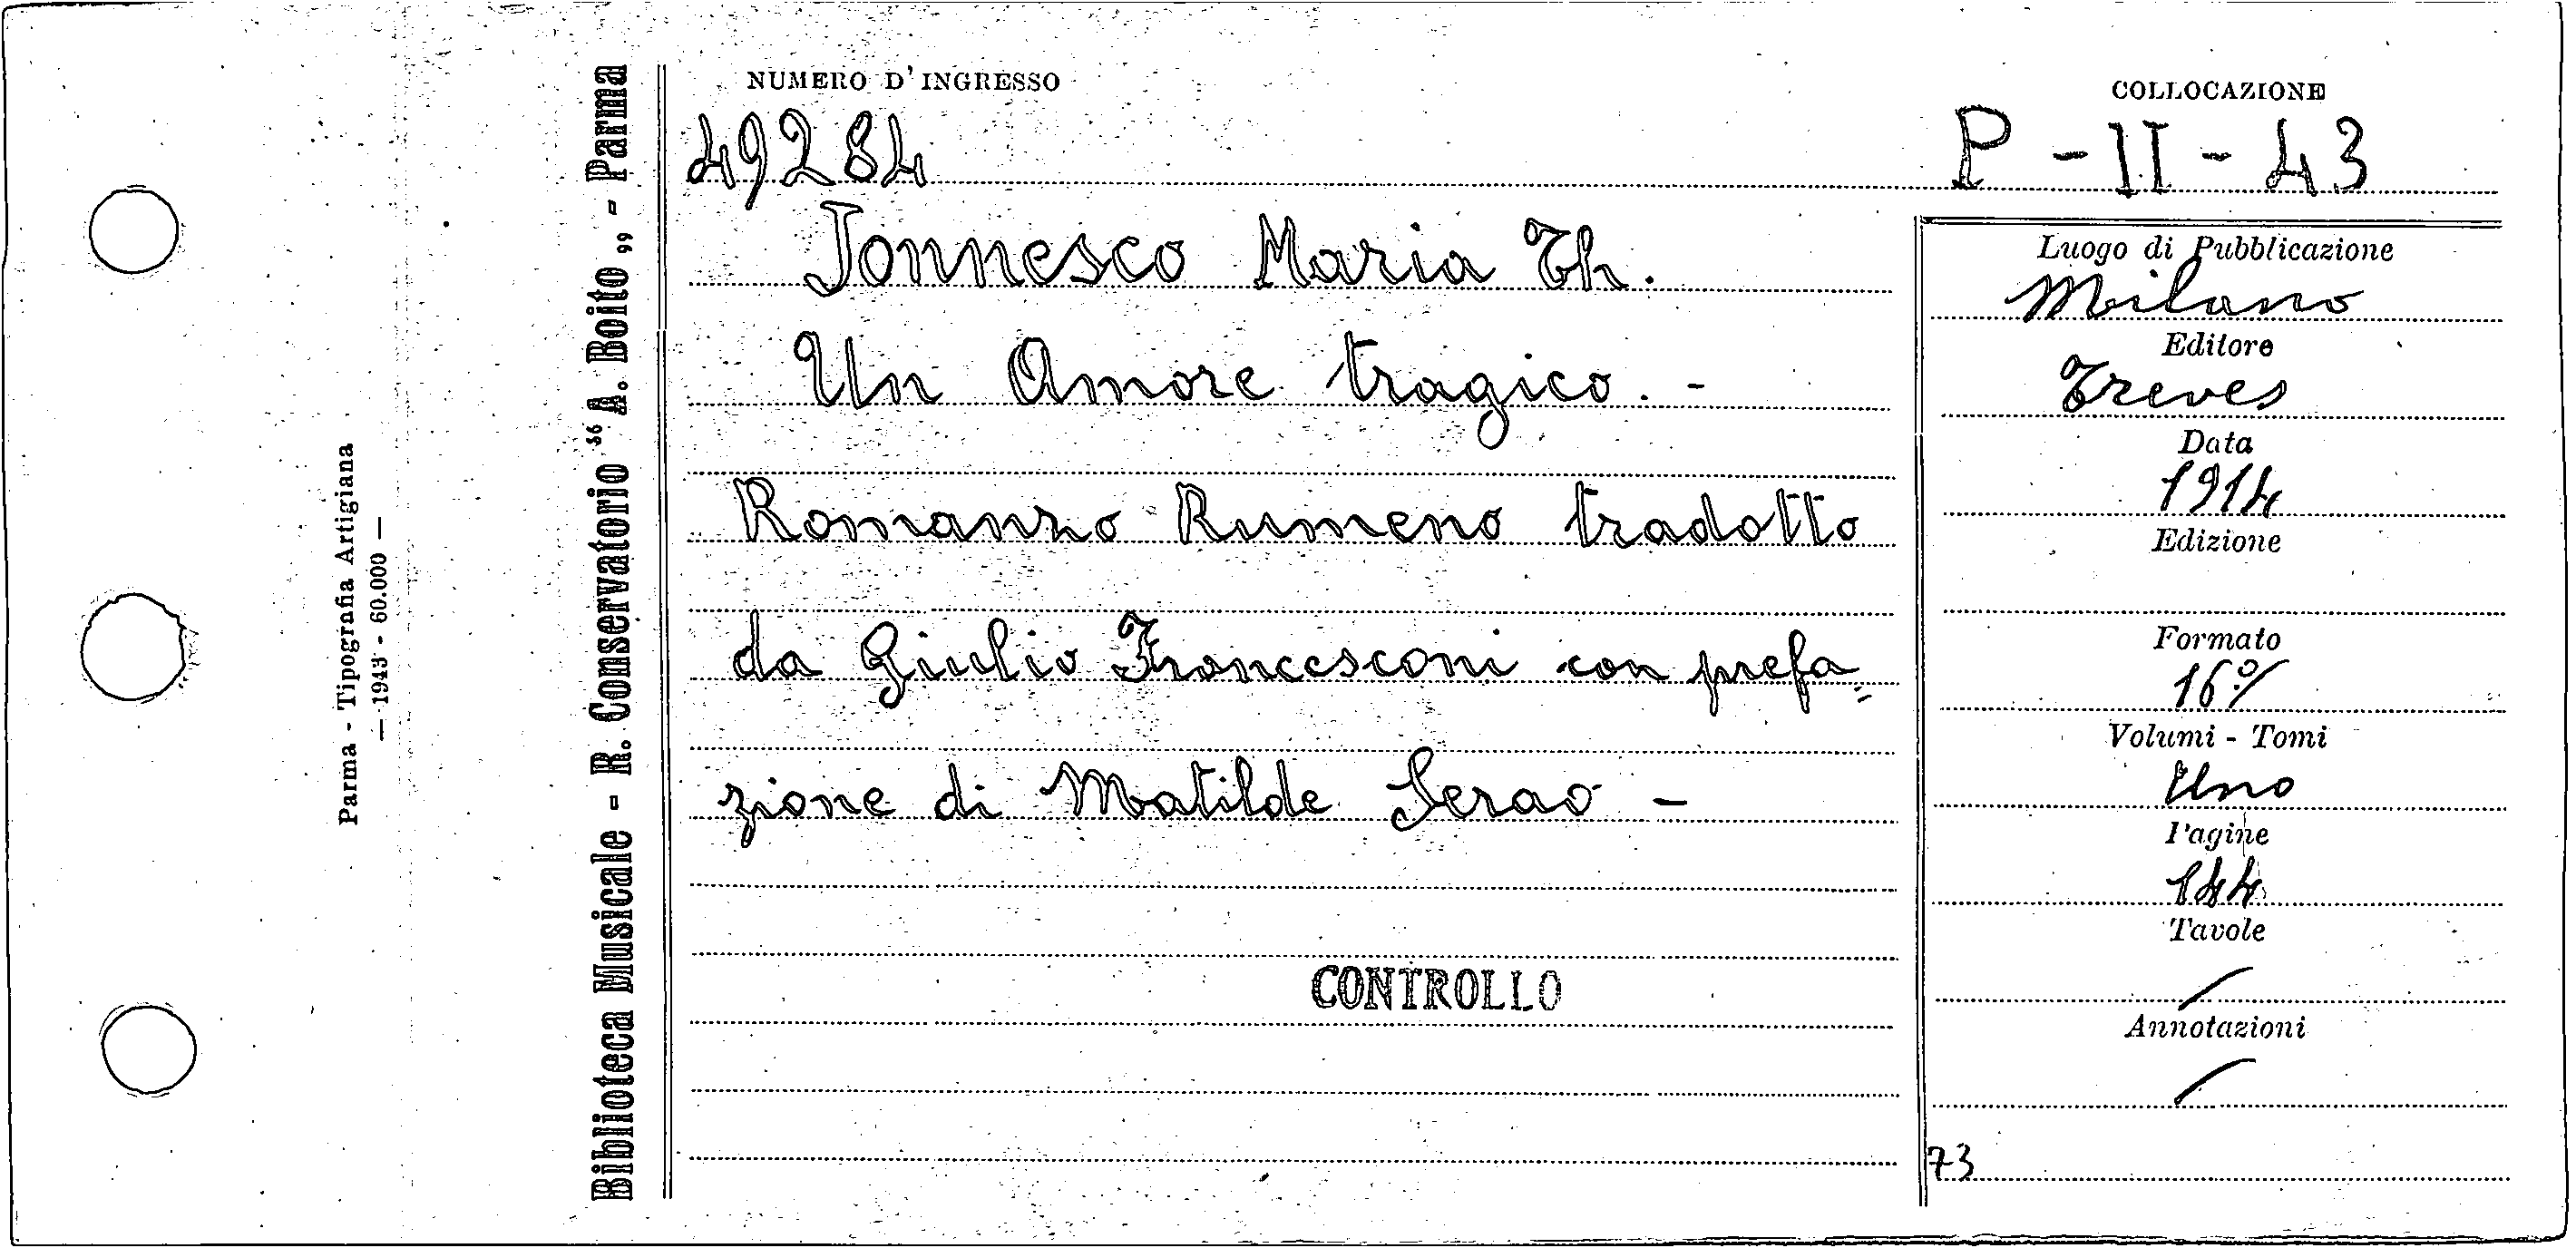 NUMERO D'INGRESSO
49284
COLLOCAZIONE
P - II - 43
Jonnesco Maria Th.
Un Amore tragico. -
Romanzo Rumeno tradotto
da Giulio Francesconi con prefa=
zione di Matilde Serao -
CONTROLLO
Luogo di Pubblicazione
Milano
Editore
Treves
Data
1914
Edizione
Formato
16º/
Volumi - Tomi
Uno
Pagine
144
Tavole
/
Annotazioni
/
73
Biblioteca Musicale - R. Conservatorio “ A. Boito „ - Parma
Parma - Tipografia Artigiana
— 1943 - 60.000 —